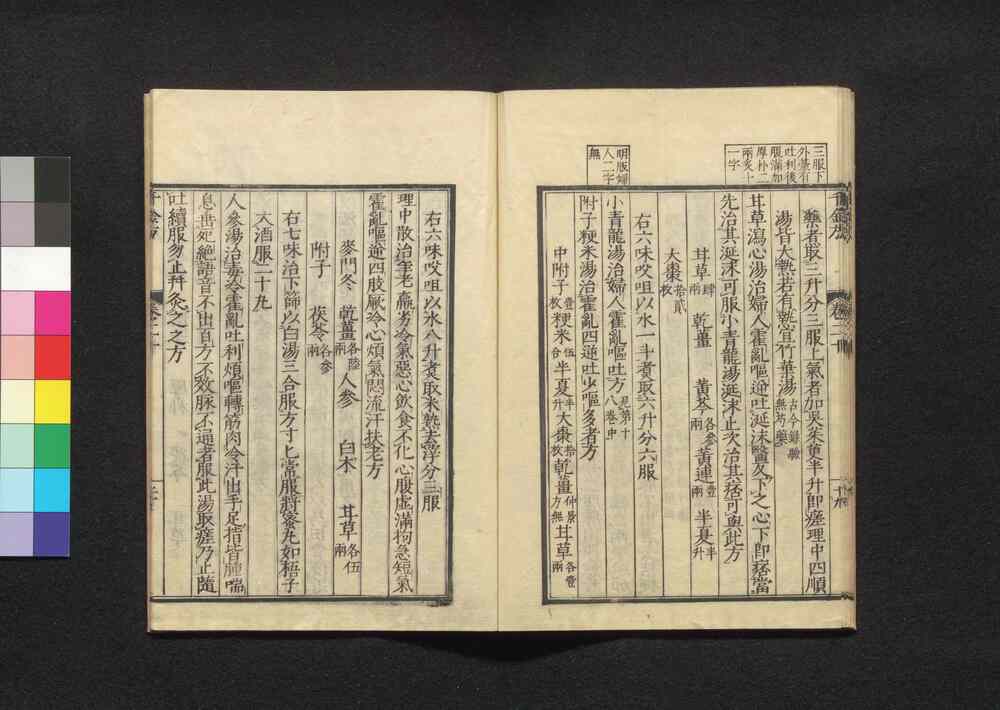 三服下
外臺有
吐利後
腹滿加
厚朴二
兩炙十
一字
羸者取三升分三服上氣者加吳茱萸半升即瘥理中四順
湯皆大熱若有熱宜竹葉湯古今録驗無芍藥
甘草瀉心湯治婦人霍亂嘔逆吐涎沫醫反下之心下即痞當
先治其涎沫可服小青龍湯涎沫止次治其痞可與此方
甘草肆兩 乾薑 黃芩各參兩 黃連壹兩 半夏半升
大棗拾貳枚
右六味㕮咀以水一斗煮取六升分六服
明版婦
人二字
無
小青龍湯治婦人霍亂嘔吐方見第十八卷中
附子粳米湯治霍亂四逆吐少嘔多者方
中附子壹枚粳米伍合半夏半升大棗拾枚乾薑仲景方無甘草各壹兩
右六味㕮咀以水八升煮取米熟去滓分三服
理中散治年老羸劣冷氣惡心飲食不化心腹虛滿拘急短氣
霍亂嘔逆四肢厥冷心煩氣悶流汗扶老方
麥門冬 乾薑各陸兩 人參 白朮 甘草各伍兩
附子 茯苓各參兩
右七味治下篩以白湯三合服方寸匕常服將蜜丸如梧子
大酒服二十丸
人參湯治毒冷霍亂吐利煩嘔轉筋肉冷汗出手足指皆腫喘
息垂死絕語音不出百方不效脉不通者服此湯取瘥乃止隨
吐續服勿止并灸之之方